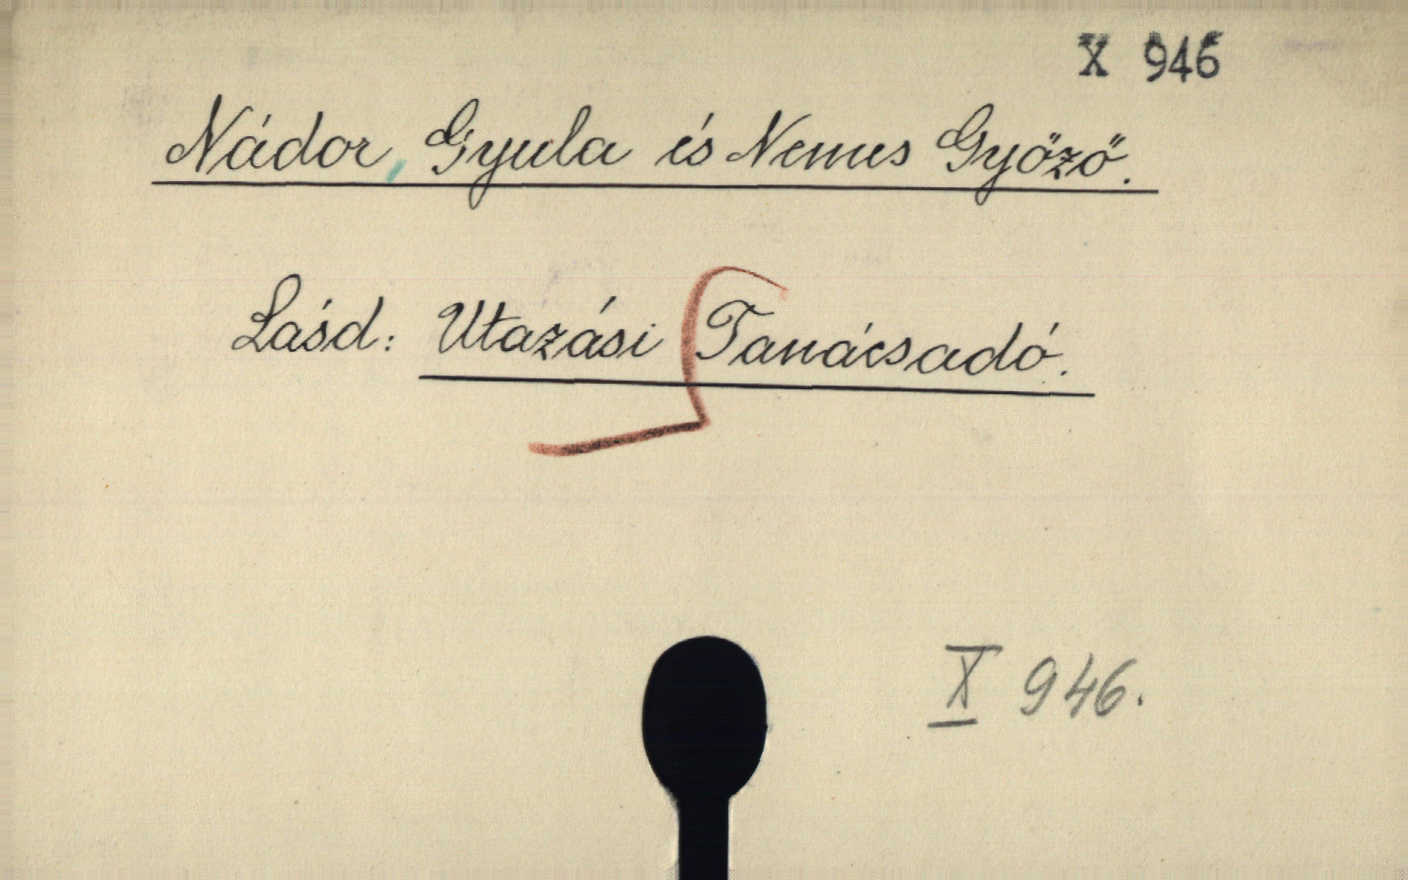 X 946
Nádor, Gyula és Nemes Győző.
Lásd: Utazási Tanácsadó.
X 946.